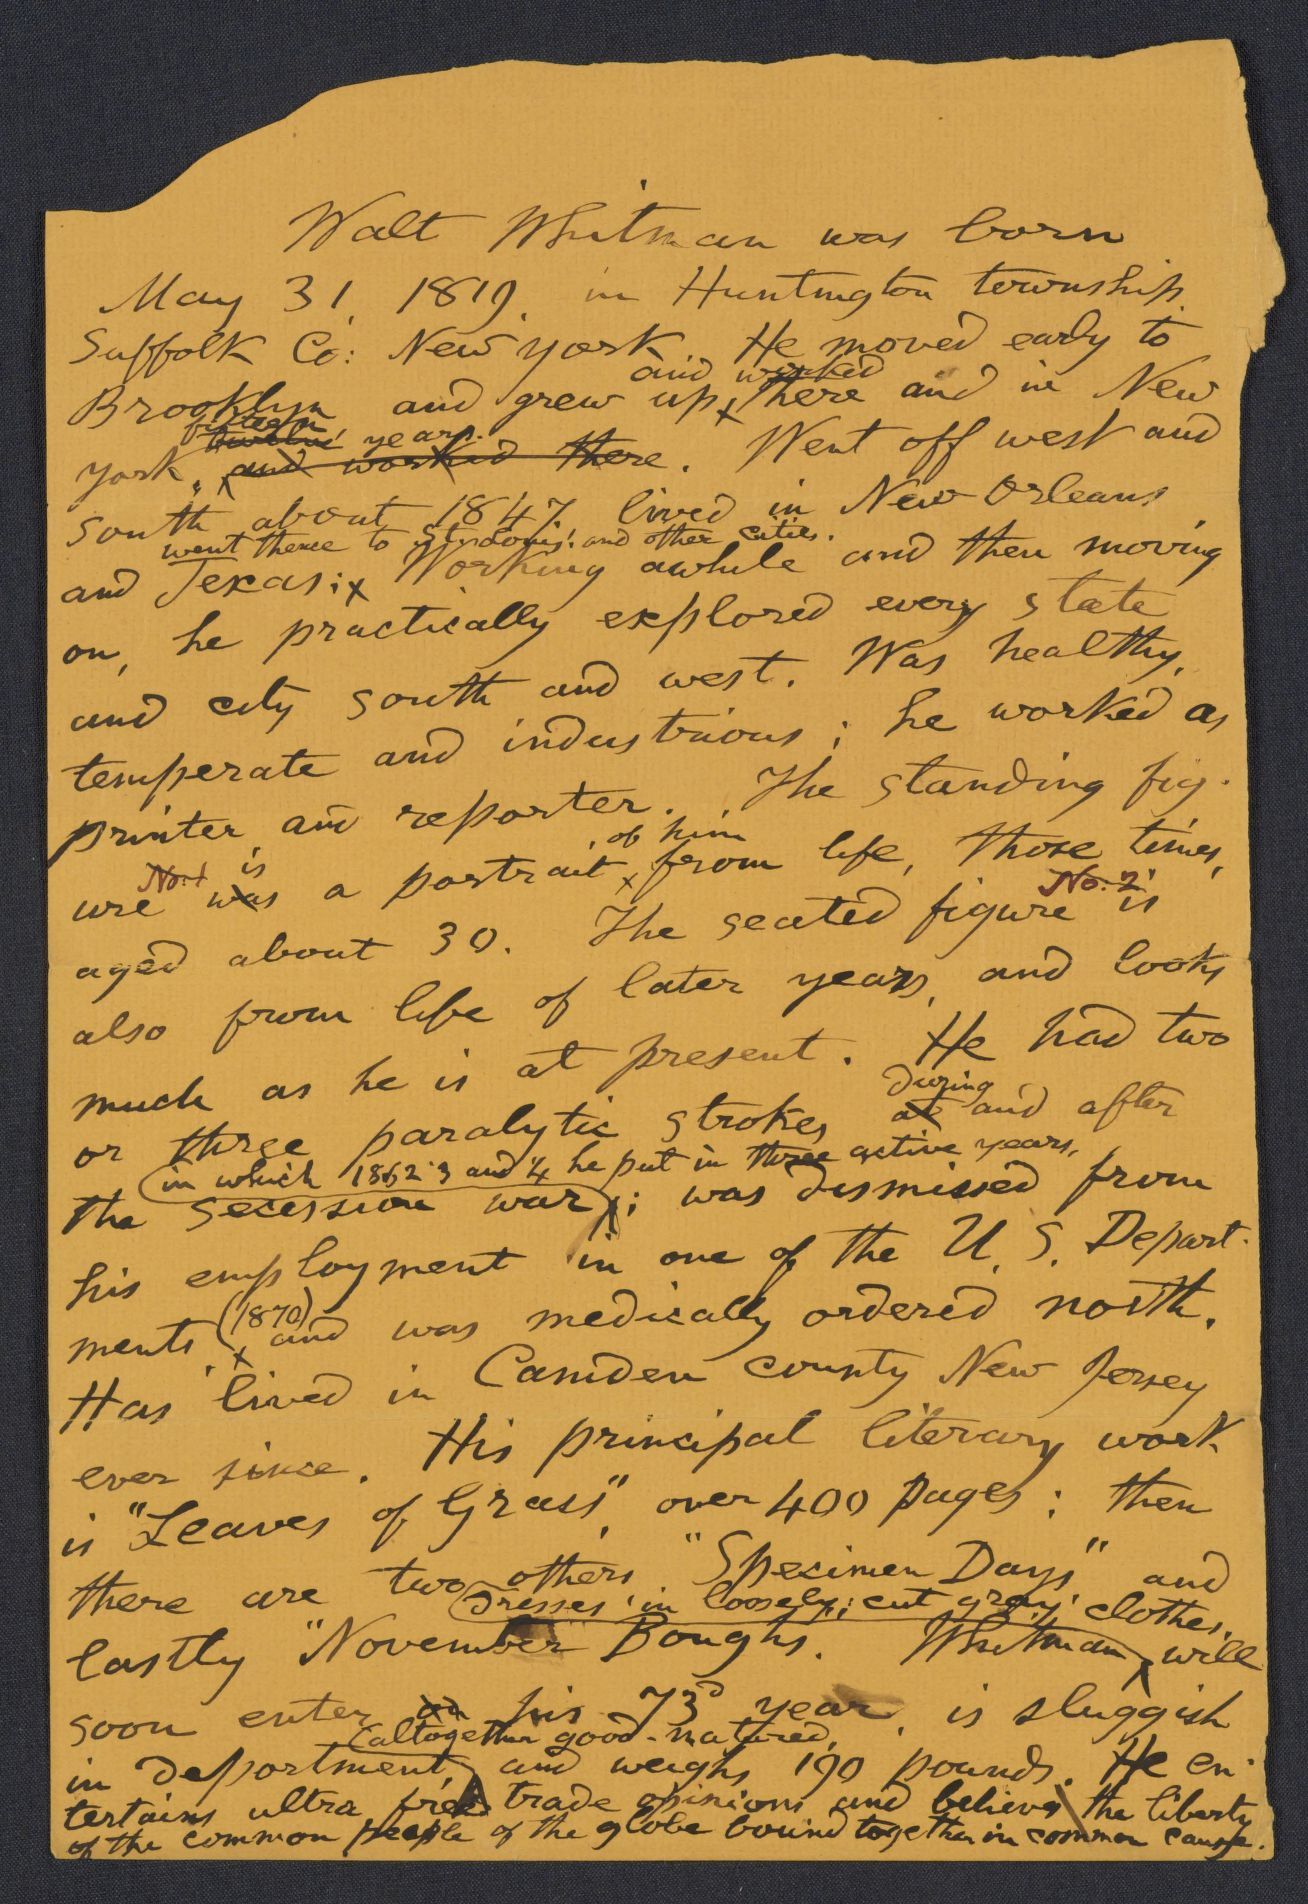 Walt Whitman was born
May 31, 1819, in Huntington township
Suffolk Co: New York. He moved early to
and worked
Brooklyn and grew up, there and in New
fifteen
twelve years.
York, and worked there. Went off west and
south about 1847 lived in New Orleans
went thence to St. Louis: and other cities.
and Texas: Working awhile and then moving
on, he practically explored every state
and city south and west. Was healthy,
temperate and industrious; he worked as
printer and reporter. The standing fig-
of him
ure No. 1 is was a portrait from life, those times,
No. 2
aged about 30. The seated figure is
also from life of later years, and looks
much as he is at present. He had two
during
or three paralytic strokes at and after
(in which 1862 '3 and '4 he put in three active years,
the secession war; was dismissed from
his employment in one of the U. S. Depart-
ments, (1870) and was medically ordered north.
Has lived in Camden county New Jersey
ever since. His principal literary work
is "Leaves of Grass," over 400 pages: then
there are two others "Specimen Days" and
(dresses in loosely: cut gray clothes,
lastly "November Boughs. Whitman will
soon enter on his 73d year, is sluggish
(altogether good-natured,
in deportment, and weighs 190 pounds. He en-
tertains ultra free trade opinions and believes the liberty
of the common people of the globe bound together in common cause.